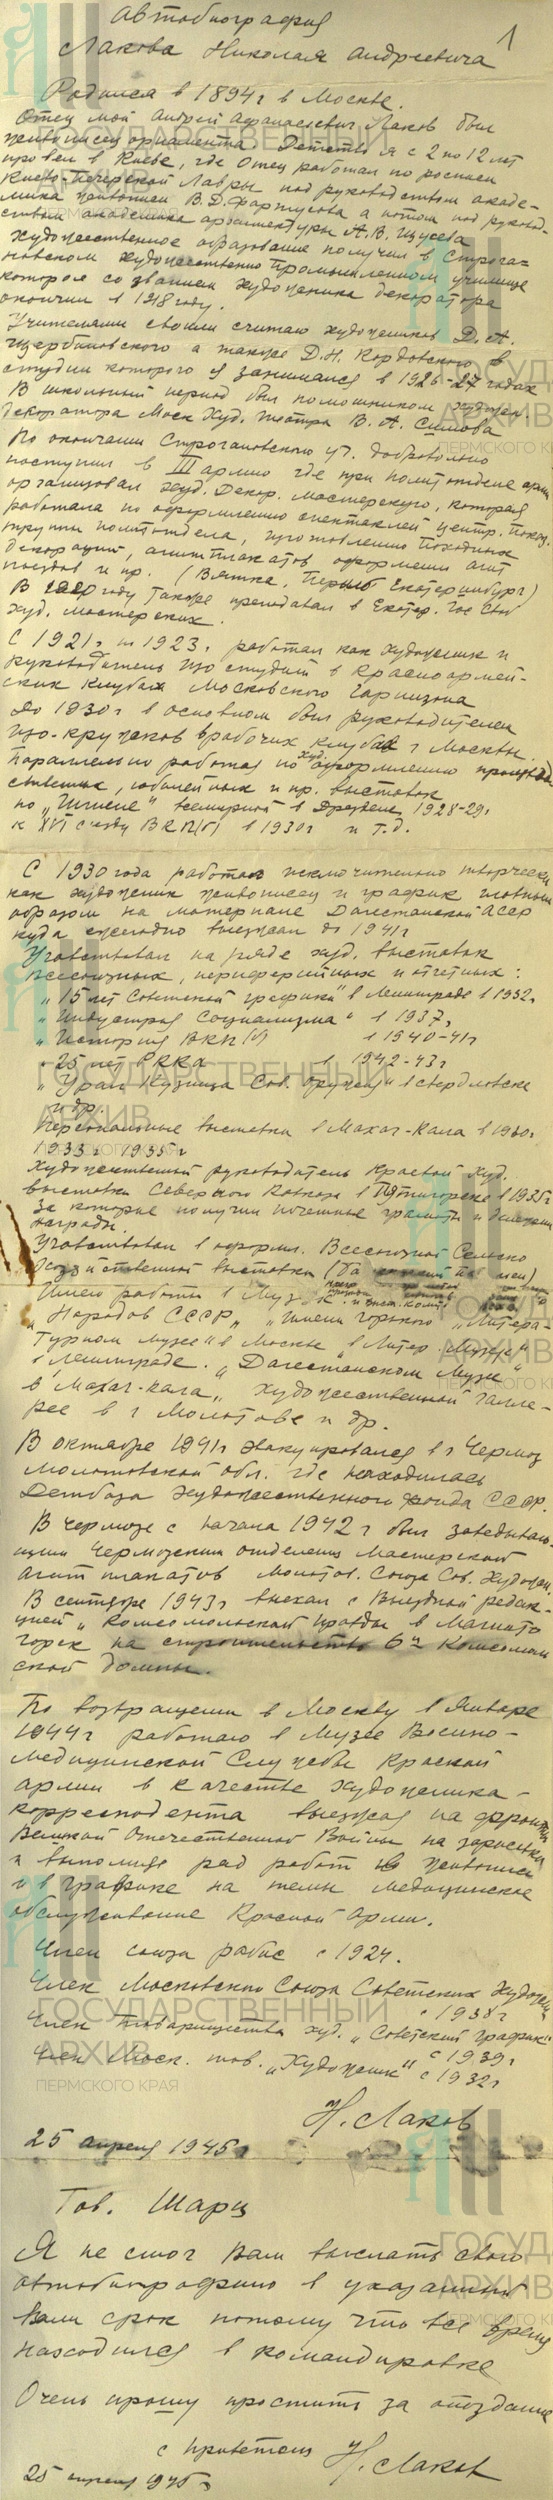 1
Автобиография
Лакова Николая Андреевича
Родился в 1894 г в Москве.
Отец мой Андрей Афанасьевич Лаков был
живописец орнамента. Детство я с 2 по 12 лет
провел в Киеве, где отец работал по росписи
Киево-Печерской Лавры под руководством акаде-
мика живописи В.Д. Фартусова а потом под руковод-
ством академика архитектуры А.В. Щусева
Художественное образование получил в Строга-
новском художественно промышленном училище
которое со званием художника декоратора
окончил в 1918 году.
Учителями своими считаю художников Д. А.
Щербиновского а также Д.Н. Кордовского в
студии которого я занимался в 1926-27 годах
В школьный период был помошником худож.
декоратора Моск Худ. театра В. А. Симова
По окончании Строгановского уч. добровольно
поступил в III армию где при политотделе армии
организовал худ. декор. мастерскую, которая
работала по оформлению спектаклей центр. показ.
труппы политотдела, изготовлению походных
декораций, агитплакатов оформлении агит
поездов и пр. (Вятка, Пермь Екатеринбург)
В 1920 году также преподавал в Екатер. Гос Своб
Худ. мастерских.
С 1921 г по 1923 г работал как художник и
руководитель изо студий в красноармей-
ских клубах Московского Гарнизона
До 1930 г в основном был руководителем
изо-кружков в рабочих клубах г Москвы.
Параллельно работая по худ. оформлению производ
ственных, юбилейных и пр. выставок
по „Гигиене" всемирной в Дрездене 1928-29г.
к XVI съезду ВКП(б) в 1930 г и т.д.
С 1930 года работаю исключительно творчески
как художник живописец и график главным
образом на материале Дагестанской АССР
куда ежегодно выезжал до 1941 г
Участвовал на ряде худ. выставок
всесоюзных, периферийных и отчетных:
„15 лет Советской графики" в Ленинграде в 1932г.
„Индустрия Социализма" в 1937г.
„История ВКП(б) в 1940-41 г
„25 лет РККА в 1942-43 г
„Урал Кузница Сов. оружия" в Свердловске
и др.
Персональные выставки в Махач-Кала в 1930 г.
1933 г 1935 г
Художественный руководитель Краевой Худ.
выставки Северного Кавказа в Пятигорске в 1935 г
За которые получил почетные грамоты и денежные
награды.
Участвовал в оформл. Всесоюзной Сельско
хозяйственной выставки
Имею работы в Муз.
„Народов СССР" „имени Горького „Литера-
турном музее" в Москве в „Литер. Музее"
в Ленинграде. „Дагестанском Музее"
в Махач-Кала„ Художественной Галле-
рее в г Молотове и др.
В октябре 1941 г эвакуировался в г Чермоз
Молотовской обл. где находилась
Детбаза Художественного фонда СССР.
В Чермозе с начала 1942 г был заведываю-
щим Чермозским отделением Мастерской
агитплакатов Молотов. Союза Сов. Художн.
В сентябре 1943 г выехал с Выездной редак-
цией „Комсомольской правды в Магнито
горск на строительство 6й Комсомоль
ской домны.
По возвращении в Москву в Январе
1944 г работаю в Музее Военно-
медицинской Службы Красной
армии в качестве художника-
корреспондента выезжая на фронты
Великой Отечественной Войны на зарисовки
и выполняя ряд работ в живописи
и в графике на темы медицинское
обслуживание Красной Армии.
Член союза рабис с 1924.
Член Московского Союза Советских Художн
с 1938 г
Член Товарищества худ. „Советский график"
с 1939 г
Член Моск. тов. „Художник" с 1932 г
Н. Лаков
25 апреля 1945 г
Тов. Шарц
Я не смог вам выслать свою
автобиографию в указанный
вами срок потому что все время
находился в командировке
Очень прошу простить за опоздание
с приветом Н. Лаков
25 апреля 1945 г.
ГОСУДАРСТВЕННЫЙ
АРХИВ
ПЕРМСКОГО КРАЯ